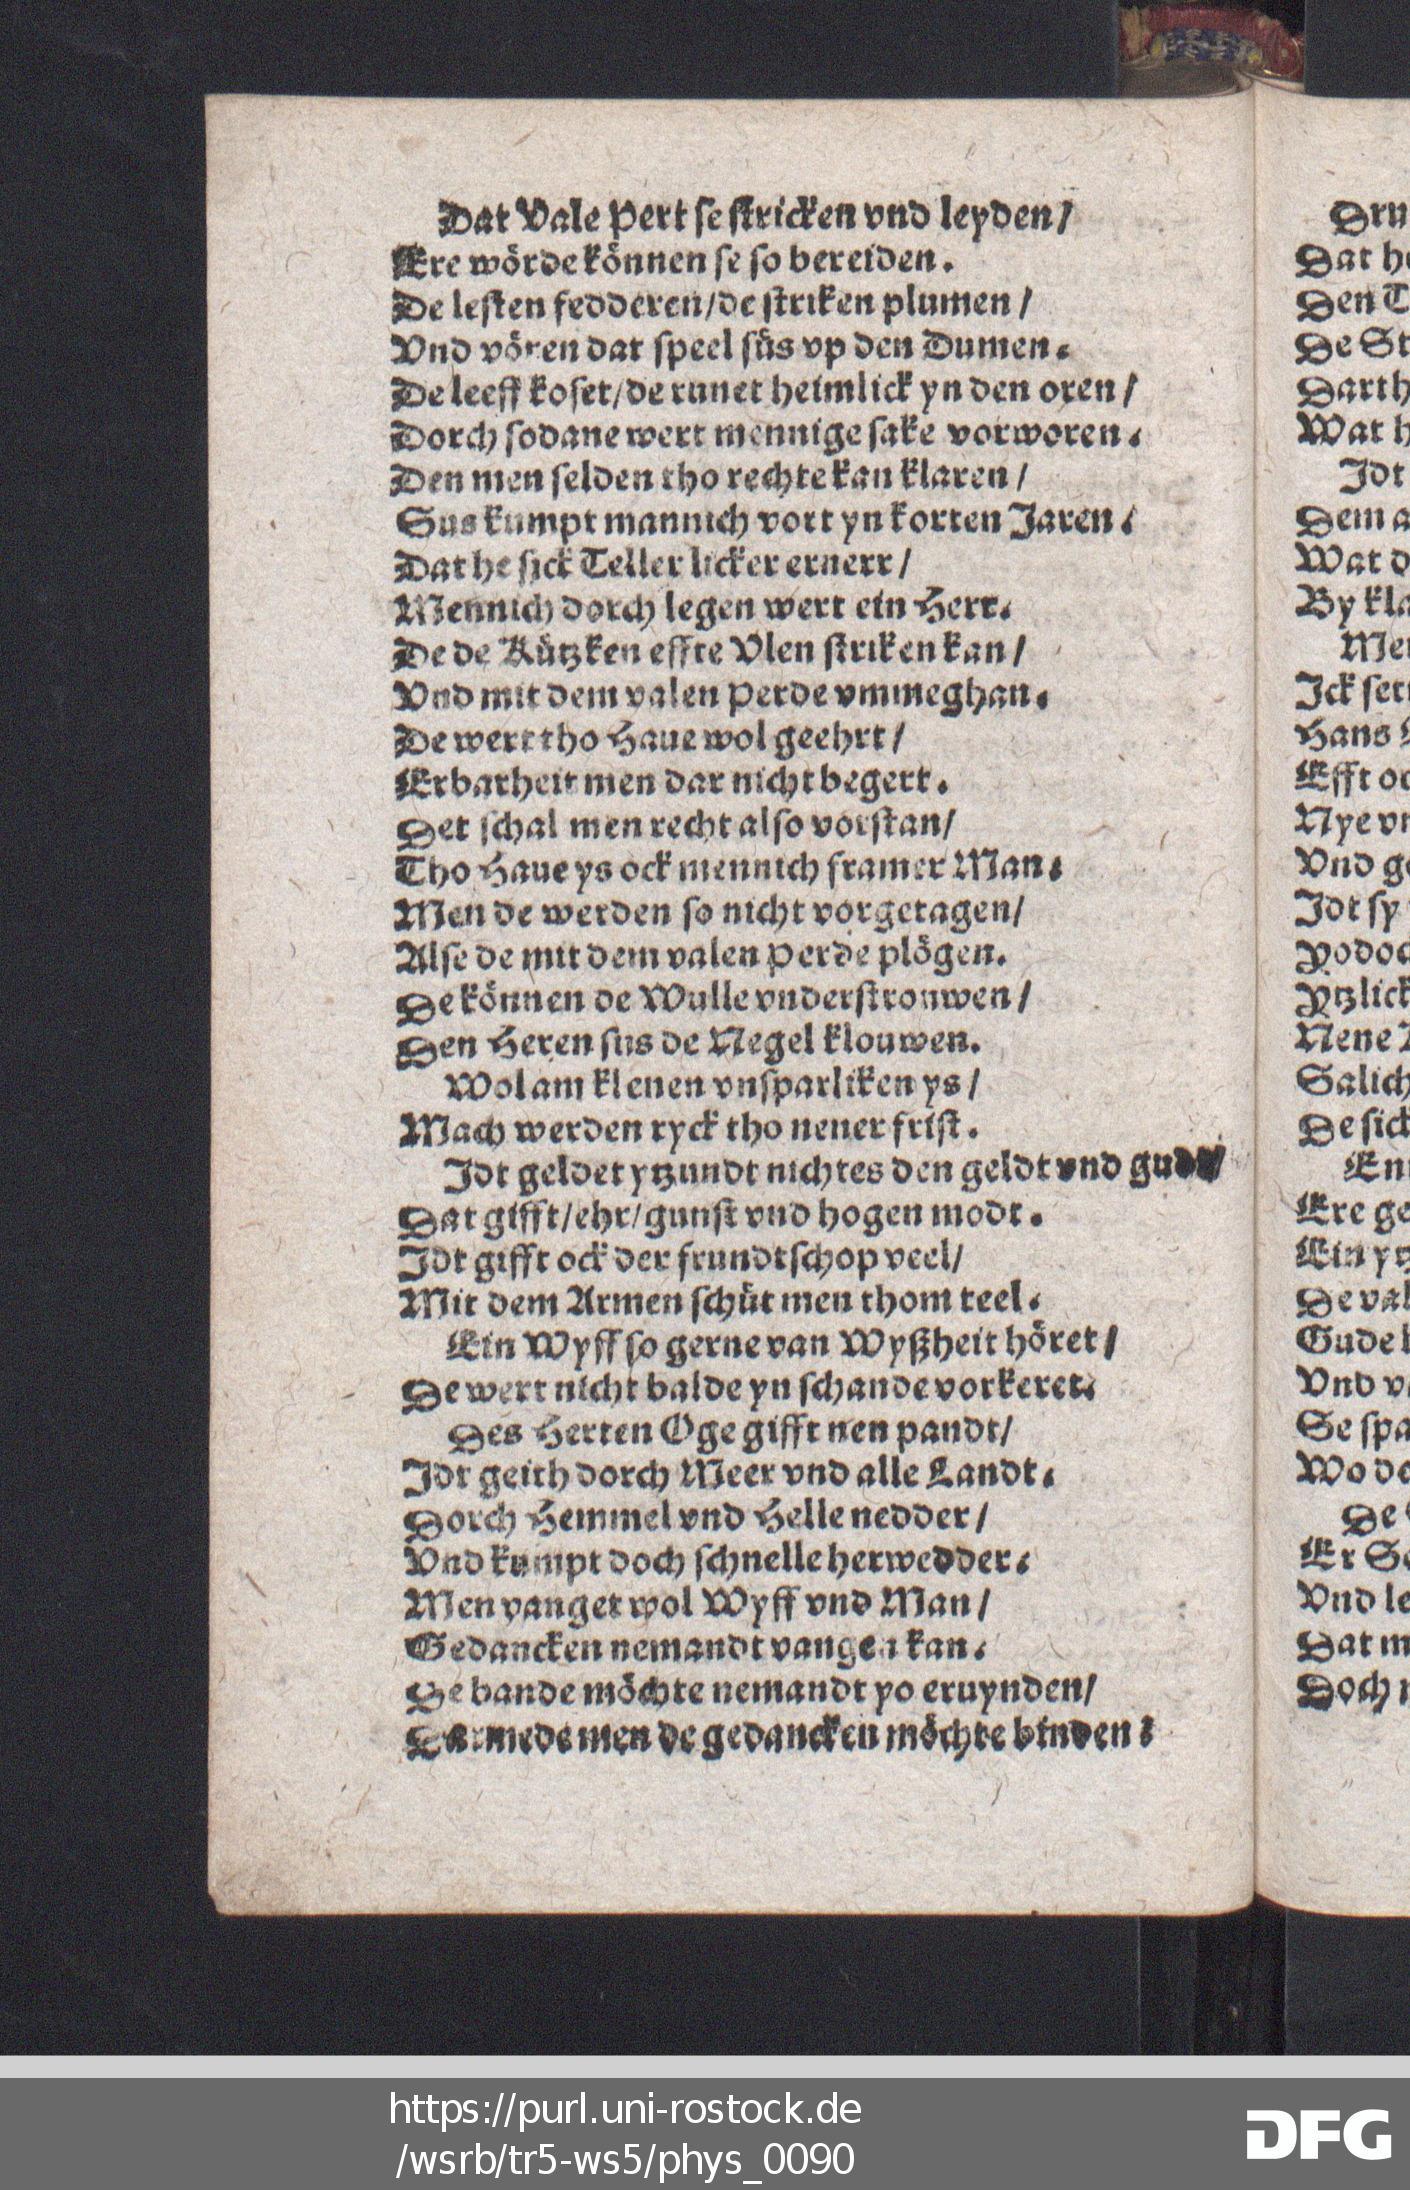 Dat Vale Pert se stricken vnd leyden/
Ere wörde können se so bereiden.
De lesten fedderen/de striken plumen/
Vnd vören dat speel süs vp den Dumen.
De leeff koset/de runet heimlick yn den oren/
Dorch sodane wert mennige sake vorworen.
Den men selden tho rechte kan klaren/
Sus kumpt mannich vort yn korten Jaren.
Dat he sick Teller licker ernerr/
Mennich dorch legen wert ein Herr.
De de Kützken effte Vlen striken kan/
Vnd mit dem valen Perde vmmeghan.
De wert tho Haue wol geehrt/
Erbarheit men dar nicht begert.
Det schal men recht also vorstan/
Tho Haue ys ock mennich framer Man.
Men de werden so nicht vorgetagen/
Alse de mit dem valen Perde plögen.
De können de Wulle vnderstrouwen/
Den Heren sus de Negel klouwen.
Wol am klenen vnsparliken ys/
Mach werden ryck tho nener frist.
Idt geldet ytzundt nichtes den geldt vnd gudt/
Dat gifft/ehr/gunst vnd hogen modt.
Idt gifft ock der frundtschop veel/
Mit dem Armen schüt men thom teel.
Ein Wyff so gerne van Wyßheit höret/
De wert nicht balde yn schande vorkeret.
Des Herten Oge gifft nen pandt/
Idt geith dorch Meer vnd alle Landt.
Dorch Hemmel vnd Helle nedder/
Vnd kumpt doch schnelle herwedder.
Men vanget wol Wyff vnd Man/
Gedancken nemandt vangen kan.
De bande möchte nemandt yo eruynden/
Darmede men de gedancken möchte binden.
Dru
Dat he
Den T
De St
Darth
Wat h
Idt
Dem a
Wat d
By kla
Men
Ick set
Hans
Efft oc
Nye vn
Vnd ge
Idt sy
Yodoc
Ytzlick
Nene
Salich
De sick
Enn
Ere ge
Ein ytz
De val
Gude
Vnd va
Se spa
Wo de
De
Er Se
Vnd le
Dat m
Doch
https://purl.uni-rostock.de
/wsrb/tr5-ws5/phys_0090
DFG